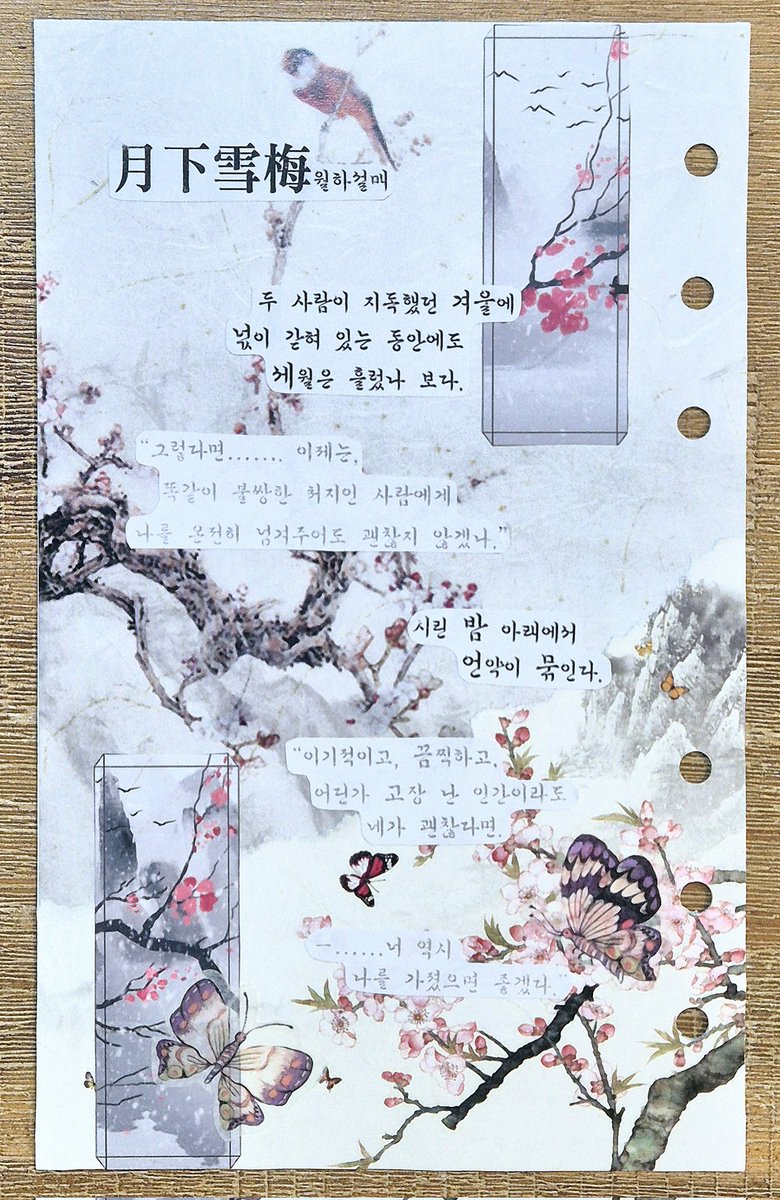 月下雪梅 월하설매
두 사람이 지독했던 겨울에
넋이 갇혀 있는 동안에도
세월은 흘렀나 보다.
“그렇다면....... 이제는,
똑같이 불쌍한 처지인 사람에게
나를 온전히 넘겨주어도 괜찮지 않겠나.”
시린 밤 아래에서
언약이 묶인다.
“이기적이고, 끔찍하고,
어딘가 고장 난 인간이라도
네가 괜찮다면.
―......너 역시
나를 가졌으면 좋겠다.”